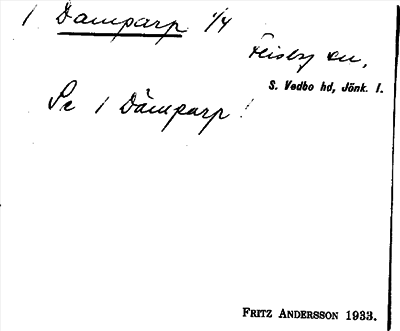 1 Damparp 1/4
Flisby sn,
S. Vedbo hd, Jönk. l.
Se 1 Dämparp!
FRITZ ANDERSSON 1933.